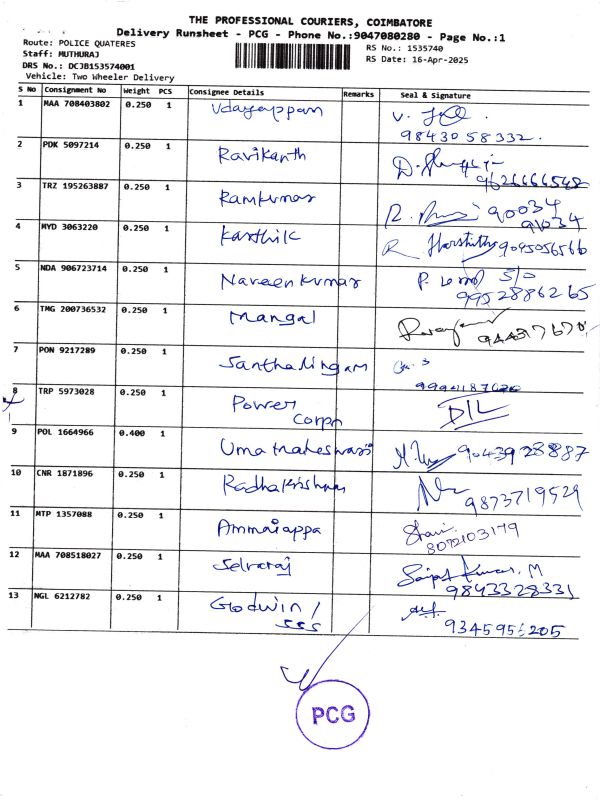 THE PROFESSIONAL COURIERS, COIMBATORE
Delivery Runsheet - PCG - Phone No.:9047080280 - Page No.:1
Route: POLICE QUATERES
RS No.: 1535740
Staff: MUTHURAJ
RS Date: 16-Apr-2025
DRS No.: DCJB153574001
Vehicle: Two Wheeler Delivery
S No Consignment No Weight PCS Consignee Details Remarks Seal & Signature
1 MAA 708403802 0.250 1 Udayappan
9843058332.
2 PDK 5097214 0.250 1 Ravikanth
9626666548
3 TRZ 195263887 0.250 1 Ramkumar 90034
91034
4 MYD 3063220 0.250 1 Karthik 9045056566
5 NDA 906723714 0.250 1 Naveenkumar S/O
9952886265
6 TMG 200736532 0.250 1 Mangal
7 PON 9217289 0.250 1 Santhalingam
8 TRP 5973028 0.250 1 Power
Corpn
9 POL 1664966 0.400 1 Umamaheswari 9043928887
10 CNR 1871896 0.250 1 Radhakrishnan
9873719529
11 MTP 1357088 0.250 1 Ammaiappa
8072103179
12 MAA 708518027 0.250 1 Selvaraj Kumar. M
9843328331
13 NGL 6212782 0.250 1 Godwin /
SSS 9345956205
PCG